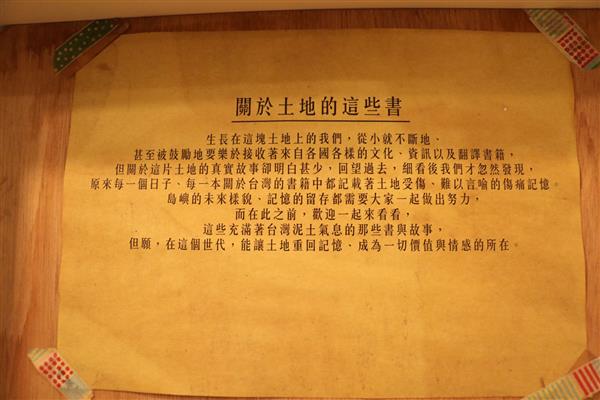 關於土地的這些書
生長在這塊土地上的我們，從小就不斷地、
甚至被鼓勵地要樂於接收著來自各國各樣的文化、資訊以及翻譯書籍，
但關於這片土地的真實故事卻明白甚少，回望過去，細看後我們才忽然發現，
原來每一個日子、每一本關於台灣的書籍中都記載著土地受傷、難以言喻的傷痛記憶。
島嶼的未來樣貌、記憶的留存都需要大家一起做出努力，
而在此之前，歡迎一起來看看，
這些充滿著台灣泥土氣息的那些書與故事，
但願，在這個世代，能讓土地重回記憶、成為一切價值與情感的所在。